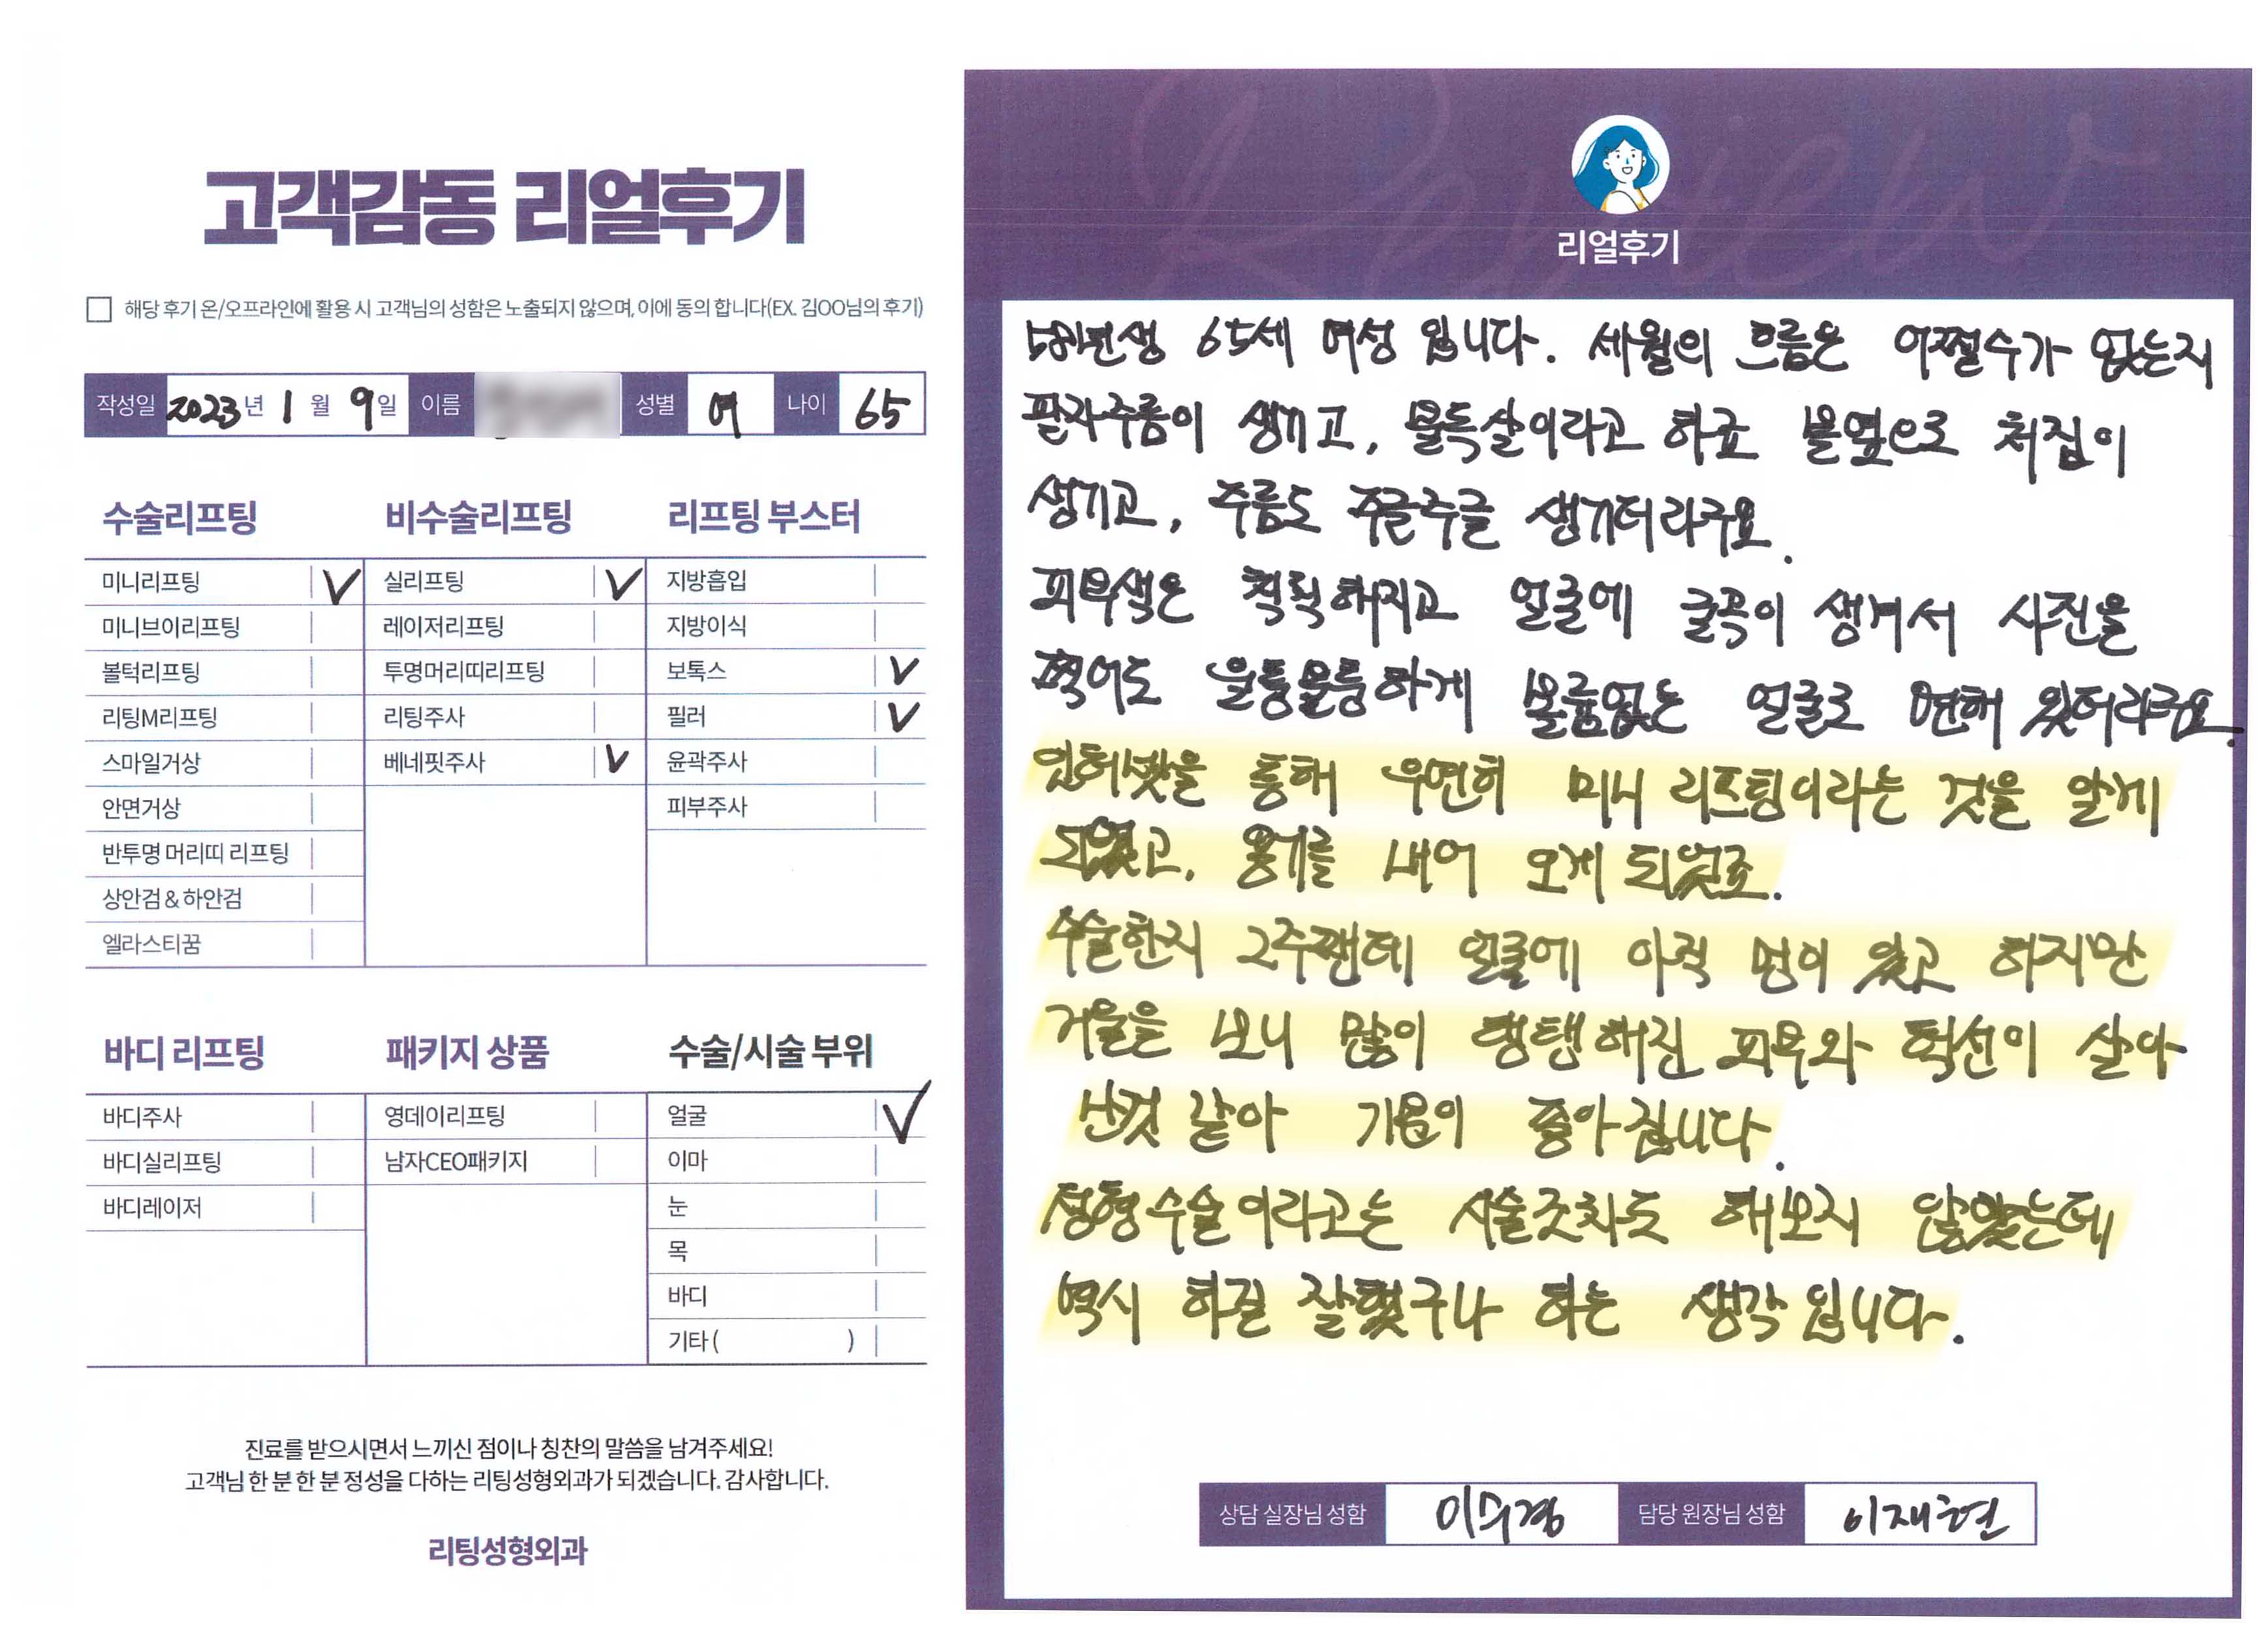 고객감동 리얼후기
해당 후기 온/오프라인에 활용 시 고객님의 성함은 노출되지 않으며, 이에 동의 합니다(EX. 김OO님의 후기)
작성일 2023년 1월 9일 이름 성별 여 나이 65
수술리프팅
미니리프팅 V
미니브이리프팅
볼턱리프팅
리팅M리프팅
스마일거상
안면거상
반투명 머리띠 리프팅
상안검&하안검
엘라스티꿈
비수술리프팅
실리프팅 V
레이저리프팅
투명머리띠리프팅
리팅주사
베네핏주사 V
리프팅 부스터
지방흡입
지방이식
보톡스 V
필러 V
윤곽주사
피부주사
바디 리프팅
바디주사
바디실리프팅
바디레이저
패키지 상품
영데이리프팅
남자CEO패키지
수술/시술 부위
얼굴 V
이마
눈
목
바디
기타( )
진료를 받으시면서 느끼신 점이나 칭찬의 말씀을 남겨주세요!
고객님 한 분 한 분 정성을 다하는 리팅성형외과가 되겠습니다. 감사합니다.
리팅성형외과
Review
리얼후기
65세 여성 입니다. 세월의 흐름은 어쩔수가 없는지
팔자주름이 생기고, 불독살이라고 하죠 볼옆으로 처짐이
생기고, 주름도 쭈글쭈글 생기더라구요.
피부색은 칙칙해지고 얼굴에 굴곡이 생겨서 사진을
찍어도 울퉁불퉁하게 볼륨없는 얼굴로 변해 있더라구요.
인터넷을 통해 우연히 미니 리프팅이라는 것을 알게
되었고, 용기를 내어 오게 되었죠.
수술한지 2주짼데 얼굴에 아직 멍이 있고 하지만
거울을 보니 많이 탱탱해진 피부와 턱선이 살아
난것 같아 기분이 좋아집니다.
성형수술이라고는 시술조차도 해보지 않았는데
역시 하길 잘했구나 하는 생각입니다.
상담 실장님 성함 담당 원장님 성함 이재현